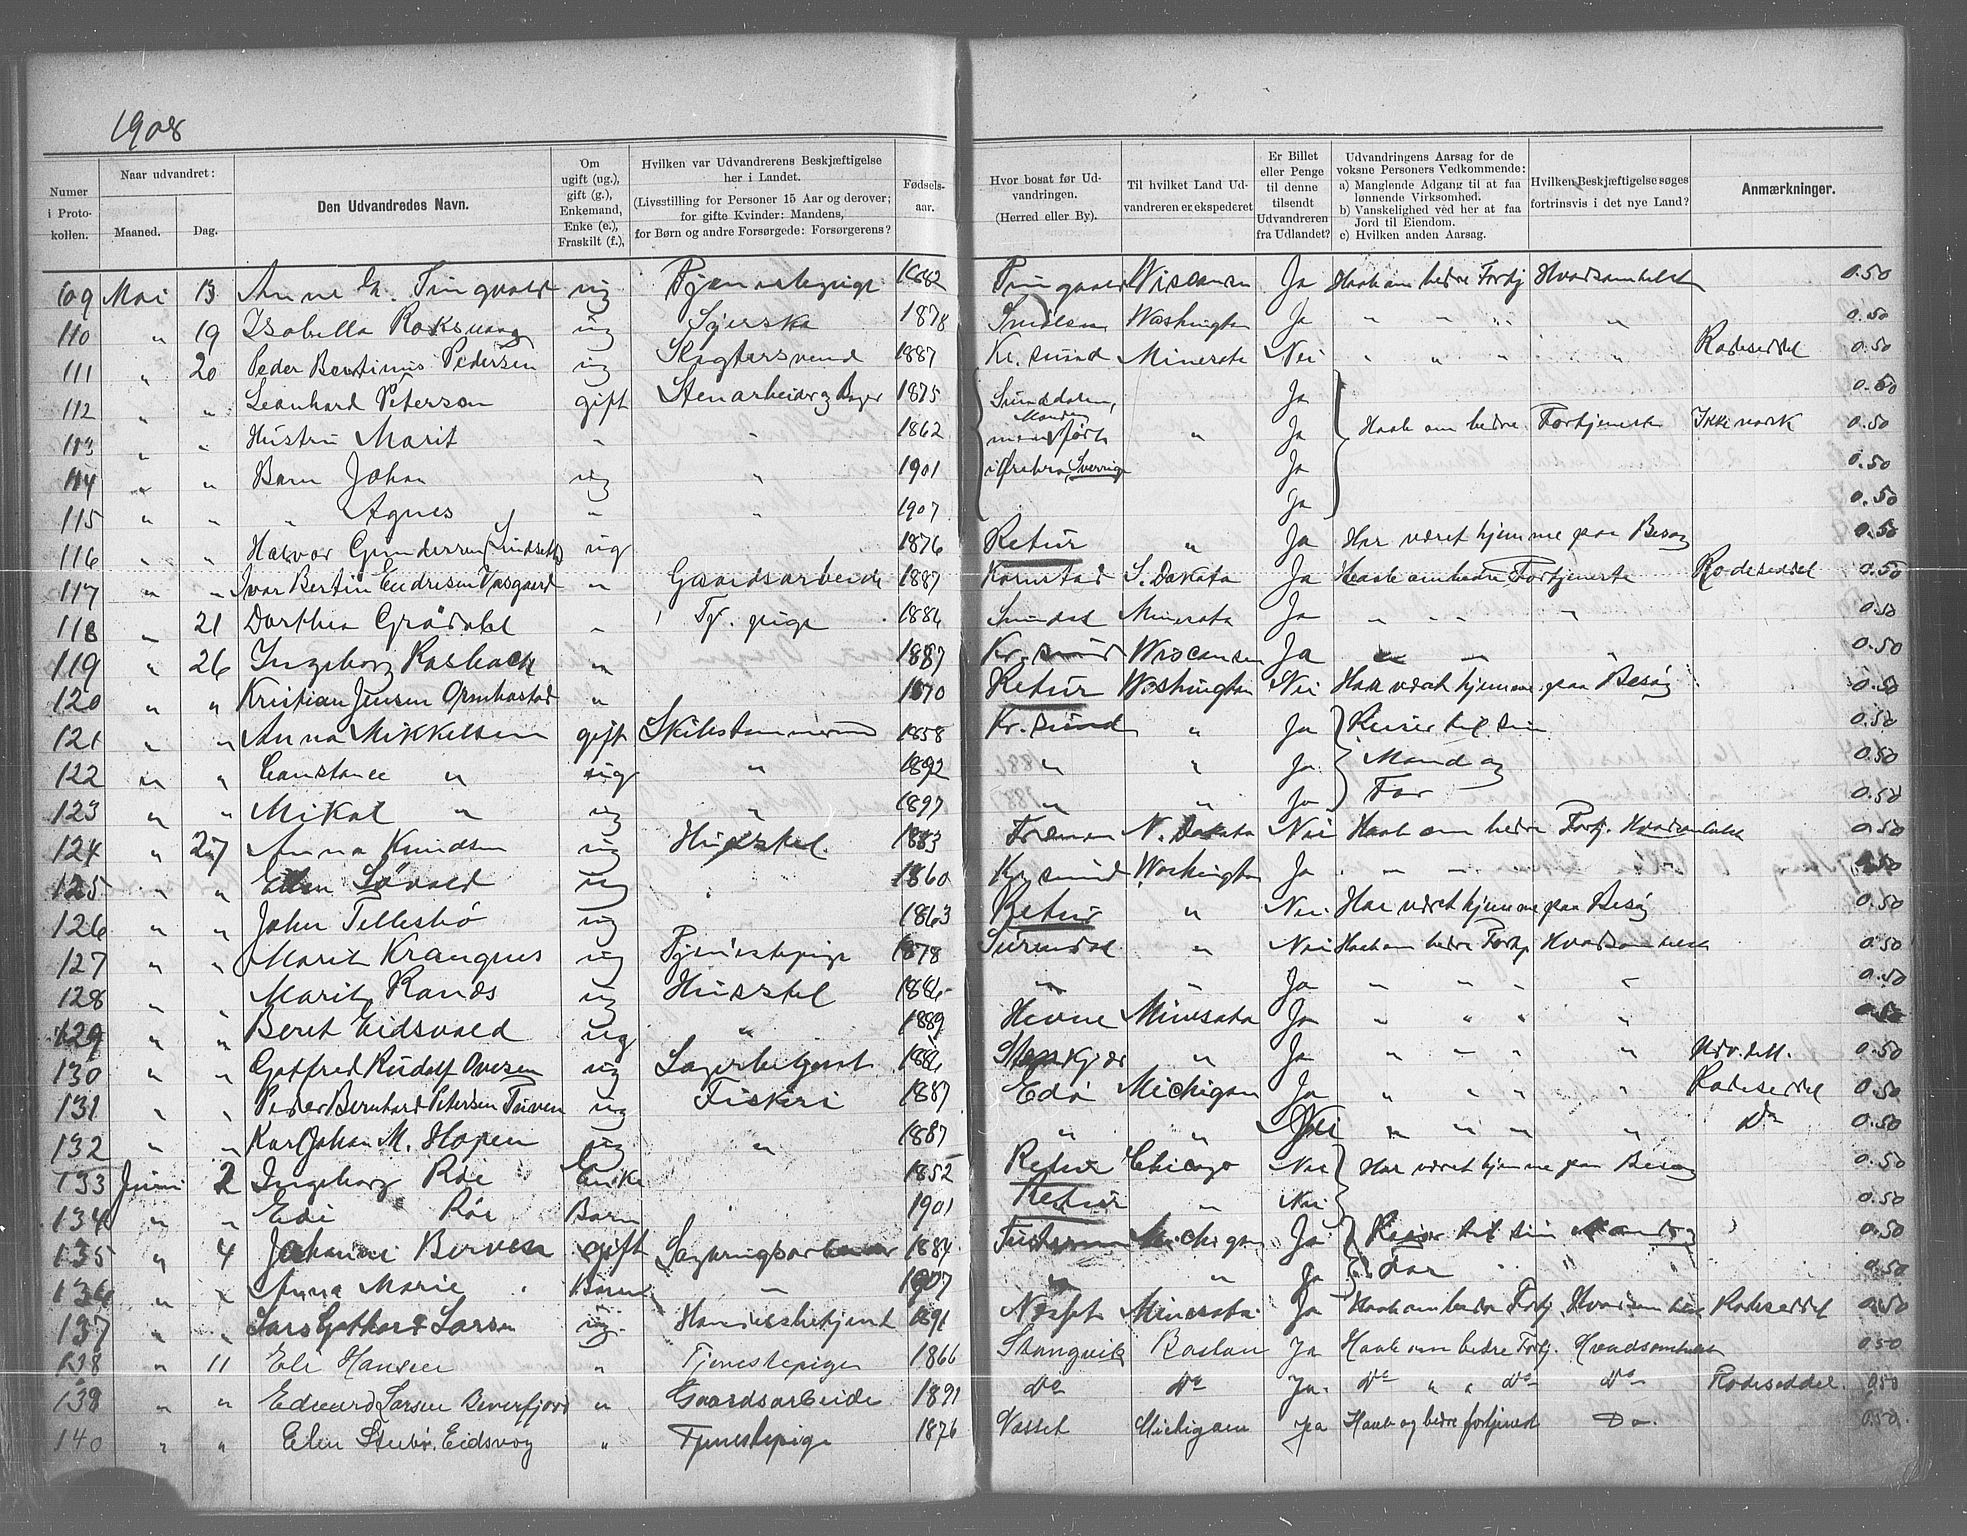 1908
Numer i Proto-kollen. | Naar udvandret: Maaned. | Dag. | Den Udvandredes Navn. | Om ugift (ug.), gift (g.), Enkemand, Enke (e.), Fraskilt (f.), | Hvilken var Udvandrerens Beskjæftigelse her i Landet. (Livsstilling for Personer 15 Aar og derover; for gifte Kvinder: Mandens, for Børn og andre Forsørgede: Forsørgerens? | Fødsels-aar. | Hvor bosat før Ud-vandringen. (Herred eller By). | Til hvilket Land Ud-vandreren er ekspederet | Er Billet eller Penge til denne tilsendt Udvandreren fra Udlandet? | Udvandringens Aarsag for de voksne Personers Vedkommende: a) Manglende Adgang til at faa lønnende Virksomhed. b) Vanskelighed ved her at faa Jord til Eiendom. c) Hvilken anden Aarsag. | Hvilken Beskjæftigelse søges fortrinsvis i det nye Land? | Anmærkninger.
109 Mai 13 Anne G. Tingvold ug Tjenestepige 1882 Tingvold Wisconsin Ja Haab om bedre Fortj Hvadsomhelst 0.50
110 " 19 Isabella Roksvaag ug 1878 Smölen Washington Ja " " " " 0.50
111 " 20 Peder Bertinus Pedersen ug Slagtersvend 1887 Kr.sund Minesota Nei " " " " Rodeseddel 0.50
112 " " Leonhard Peterson gift Stenarbeider 1875 Sunddalen, Ja 0.50
113 " " Hustru Marit " " 1862 Manden født " Ja Haab om bedre Fortjeneste Ikke norsk 0.50
114 " " Barn Johan ug " 1901 i Ørebro, Sverrige Ja 0.50
115 " " " Agnes " " 1907 Ja 0.50
116 " " Halvor Gundersen (Lindseth) ug 1876 Retur " Ja Har været hjemme paa Besøg 0.50
117 " " Ivar Bertin Endresen Vasgaard " Gaardsarbeide 1887 Kornstad S. Dakota Ja Haab om bedre Fortjeneste Rodeseddel 0.50
118 " 21 Dorthea Grødahl " Tj. pige 1886 Sundal Minesota Ja " " " " 0.50
119 " 26 Ingeborg Rosback " 1887 Kr.sund Wisconsin Ja " " " 0.50
120 " " Kristian Jensen Ormbostad " 1870 Retur Washington Nei Har været hjemme paa Besøg 0.50
121 " " Anna Mikkelsen gift Skibstømmermand 1858 Kr.sund " Ja Reiser til sin 0.50
122 " " Constance " ug " 1892 " " Ja Mand og 0.50
123 " " Mikal " ug " 1897 " " Ja Far 0.50
124 " 27 Anna Knudsen ug Husstel 1883 N. Dakota Nei Haab om bedre Fortj. Hvadsomhelst 0.50
125 " " Søvold ug 1860 Kr.sund Washington Ja " " " " 0.50
126 " " John Tellesbø ug 1863 Retur " Nei Har været hjemme paa Besøg 0.50
127 " " Marit Krangnes ug Tjenestepige 1878 Surendal " Nei Haab om bedre Fortj Hvadsomhelst 0.50
128 " " Marit Ranes ug Husstel 1886 " " Ja " " " " 0.50
129 " " Beret Eidsvold ug " 1889 Hevne Minesota Ja " " " " 0.50
130 " " Gotfred Rudolf Ovesen ug Lagerbetjent 1886 Stenkjær " Ja " " " " Udv. till. 0.50
131 " " Peder Bernhard Petersen Tuven ug Fiskeri 1887 Edø Michigan Ja " " " " Rodeseddel 0.50
132 " " Karl Johan M. Hopen ug " 1887 " " Nei " " " " Do 0.50
133 Juni 2 Ingeborg Röe Enke 1852 Retur Chicago Nei Har været hjemme paa Besøg 0.50
134 " " Edi Röe Barn 1901 Retur " Nei 0.50
135 " 4 Johanne Berven gift Sagbrugsarbeider 1884 Tustern Michigan Ja Reiser til sin Mand og 0.50
136 " " Anna Marie Barn " 1907 " " Ja Far " " " 0.50
137 " " Lars Gothard Larsen ug. Handelsbetjent 1891 Nesset Minesota Ja Haab om bedre Fortj. Hvadsomhelst Rodeseddel 0.50
138 " 11 Eli Hansen " Tjenestepige 1866 Stangvik Boston Ja Haab om bedre Fortj. Hvadsomhelst 0.50
139 " " Edvard Larsen Beverfjord " Gaardsarbeide 1891 do do Ja. do " " do do Rodeseddel. 0.50
140 " " Elen Eidsvog " Tjenestepige 1876 Vasset Michigan ja Haab og bedre fortjenest Do 0.50